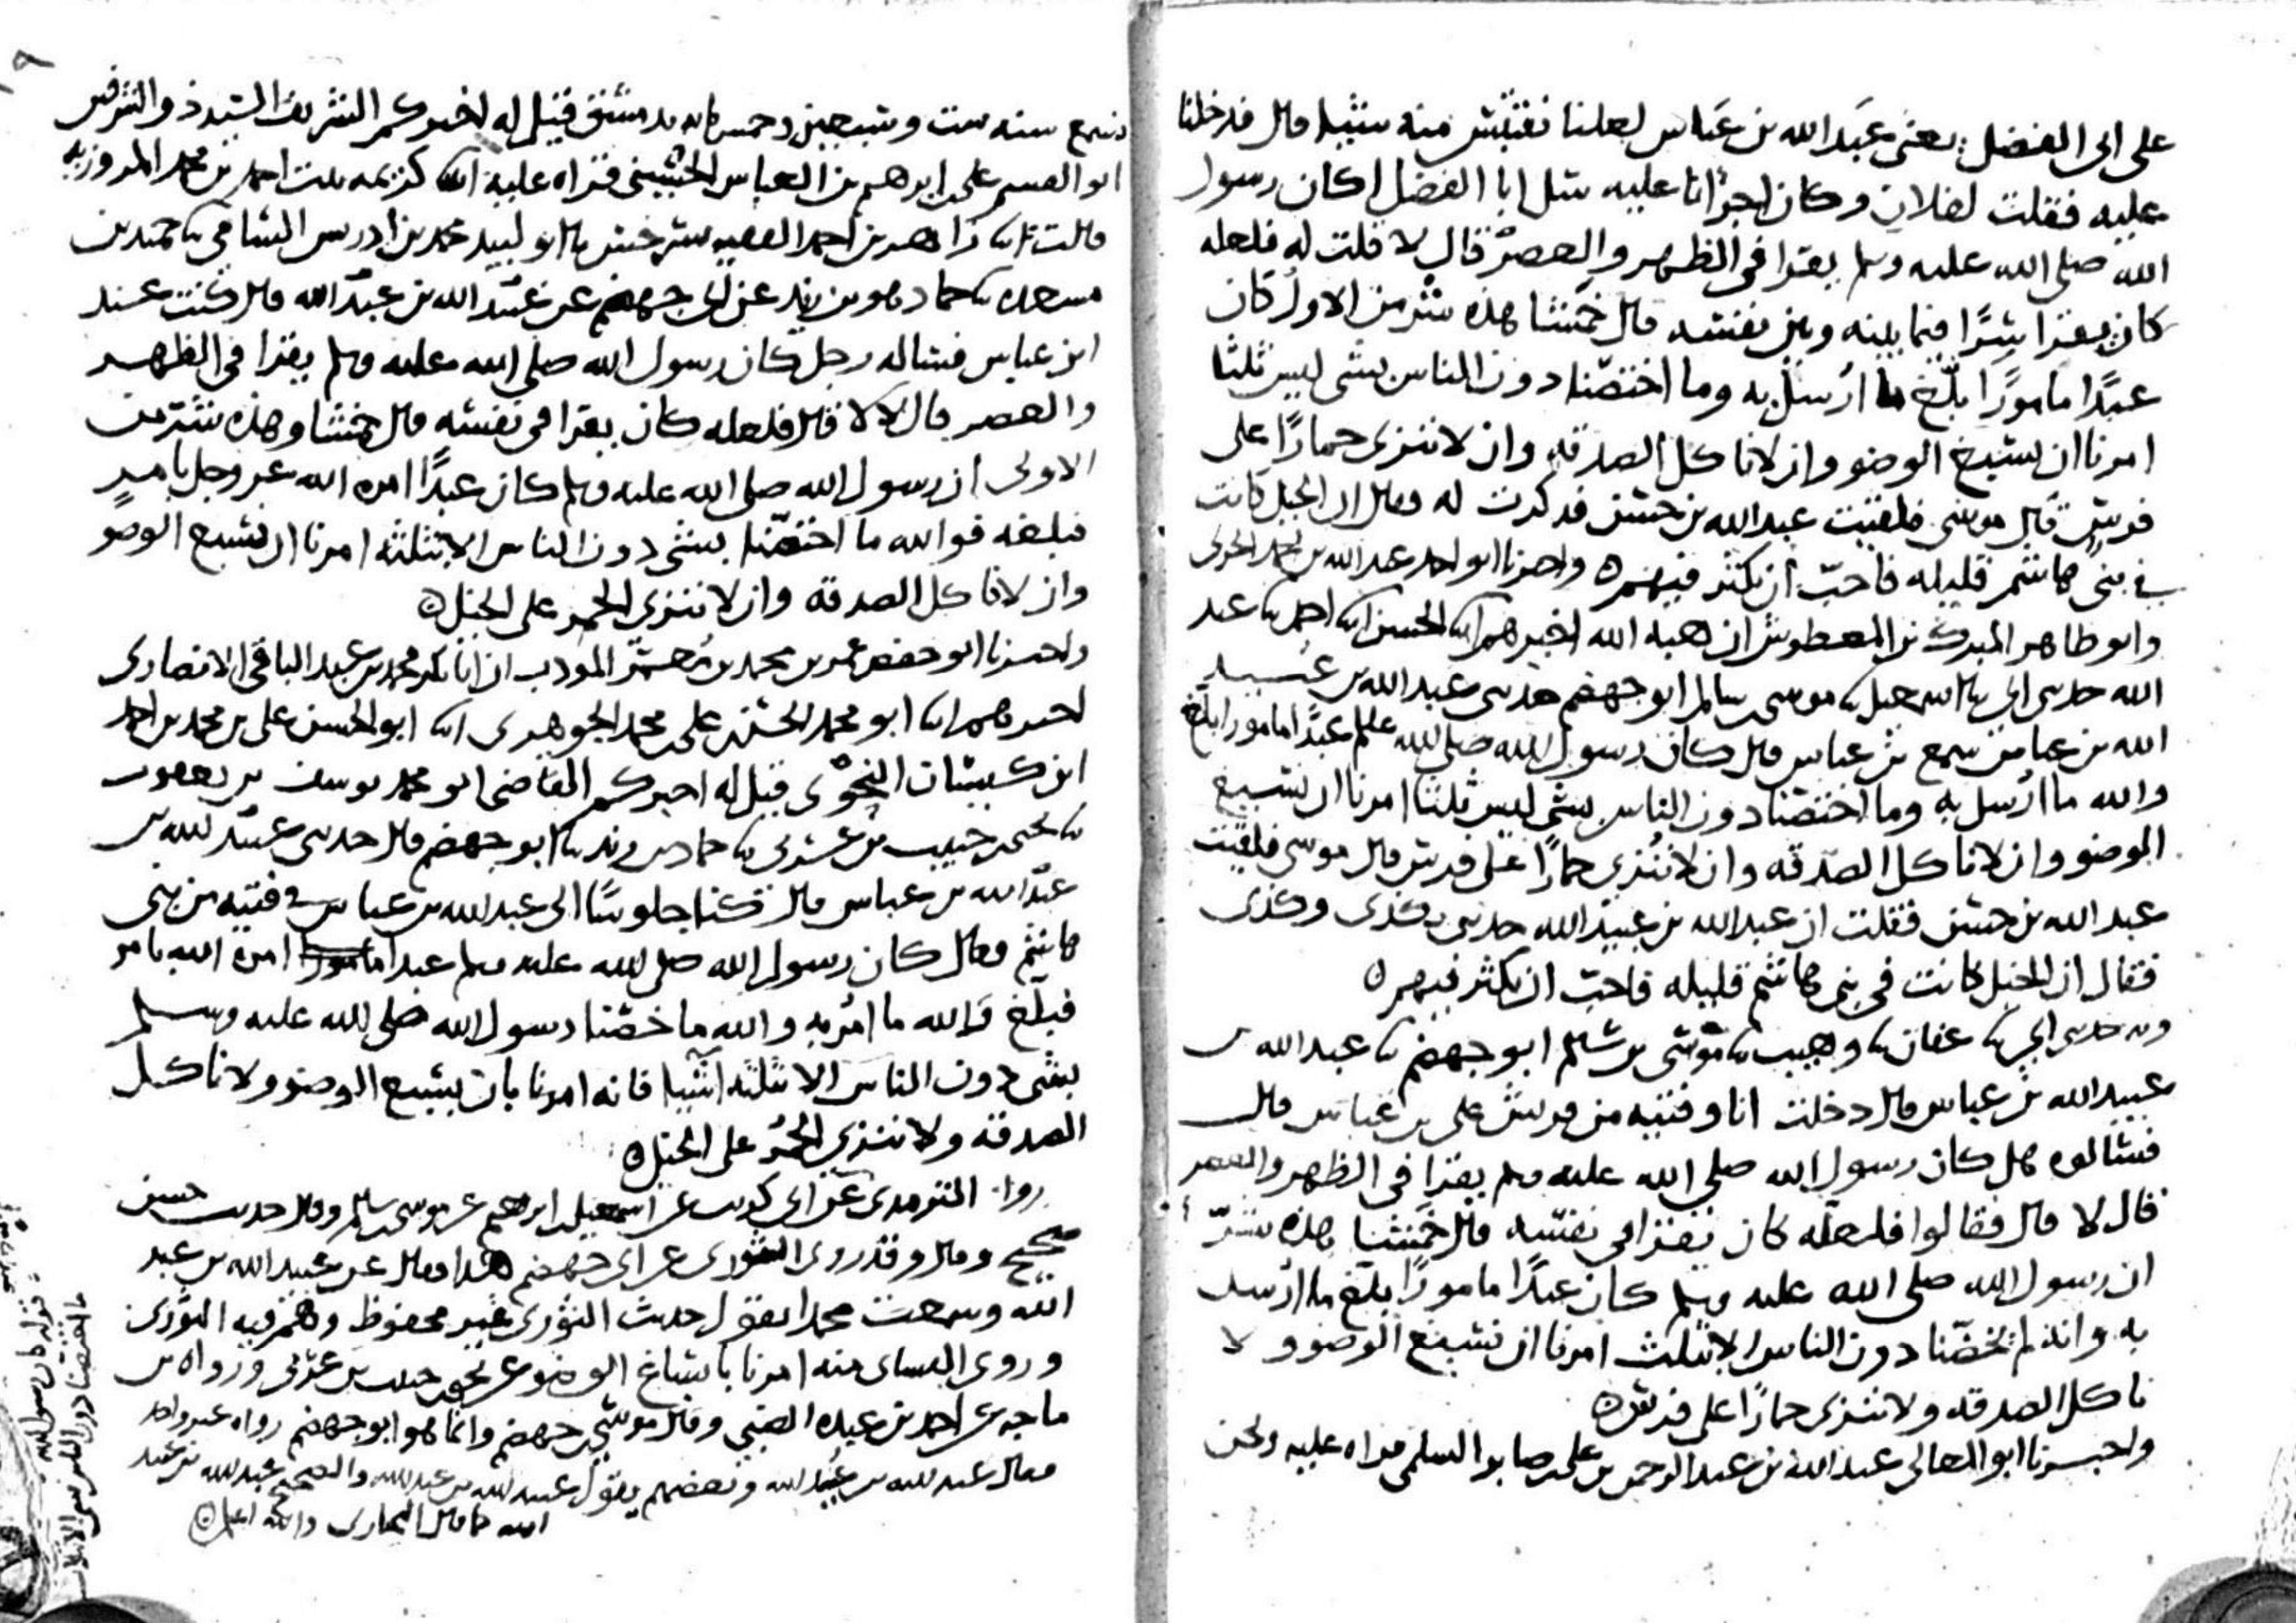 على ابى الفضل يعنى عبد الله بن عباس لعلنا نقتبس منه شيا قال فدخلنا
عليه فقلت لفلان وكان اجرانا عليه سل ابا الفضل اكان رسول
الله صلى الله عليه وسلم يقرا فى الظهر والعصر قال لا قلت له فلعله
كان يقرا سرًا فيما بينه وبين نفسه قال خمشا هذه شر من الاول كان
عبدًا مامورًا بلّغ ما ارسل به وما اختصنا دون الناس بشى ليس ثلثا
امرنا ان نسبغ الوضو وان لا ناكل الصدقة وان لا ننزى حمارًا على
فرس قال موسى فلقيت عبد الله بن حسن فذكرت له فقال ان الخيل كانت
فى بنى هاشم قليله فاحب ان تكثر فيهم ه واخبرنا ابو احمد عبد الله بن احمد الحربى
وابو طاهر المبرك بن المعطوش ان هبه الله اخبرهم انا الحسن انا احمد نا عبد
الله حدثنى ابى نا اسمعيل نا موسى بن سالم ابو جهضم حدثنى عبد الله بن عبيد
الله بن عباس سمع بن عباس قال كان رسول الله صلى الله عليه وسلم عبدًا مامورا بلغ
والله ما ارسل به وما اختصنا دون الناس بشى ليس ثلثا امرنا ان نسبغ
الوضو وان لا ناكل الصدقه وان لا ننزى حمارًا على فرس قال موسى فلقيت
عبد الله بن حسن فقلت ان عبد الله بن عبيد الله حدثنى بكذى وكذى
فقال ان الخيل كانت فى بنى هاشم قليله فاحب ان تكثر فيهم ه
وبه حدثنى ابى نا عفان نا وهيب نا موسى بن سلم ابو جهضم نا عبد الله بن
عبيد الله بن عباس قال دخلت انا وفتيه من قريش على بن عباس قال
فسالوه هل كان رسول الله صلى الله عليه وسلم يقرا فى الظهر والعصر
قال لا قال فقالوا فلعله كان يقرا فى نفسه قال خمشا هذه شرّ
ان رسول الله صلى الله عليه وسلم كان عبدًا مامورًا بلغ ما ارسل
به وانه لم يخصّنا دون الناس الا بثلث امرنا ان نسبغ الوضو ولا
ناكل الصدقه ولا ننزى حمارًا على فرس ه
واخبرنا ابو المعالى عبد الله بن عبد الرحمن بن على بن صابر السلمى قراه عليه ونحن
نسمع سنه ست وسبعين وخمس مايه بدمشق قيل له اخبركم الشريف السيد ذو الشرفين
ابو القسم على بن ابرهيم بن العباس الحسينى قراه عليه انا كريمه بنت احمد بن محمد المروزيه
قالت انا زاهر بن احمد الفقيه بسرخس نا ابو لبيد محمد بن ادريس الشامى نا حميد بن
مسعده نا حماد هو بن زيد عن ابى جهضم عن عبيد الله بن عبد الله قال كنت عند
ابن عباس فساله رجل كان رسول الله صلى الله عليه وسلم يقرا فى الظهر
والعصر قال لا لا قال فلعله كان يقرا فى نفسه قال خمشا وهذه شر من
الاولى ان رسول الله صلى الله عليه وسلم كان عبدًا امره الله عز وجل بامر
فبلغه فوالله ما اختصّنا بشى دون الناس الا بثلثه امرنا ان نسبغ الوضو
وان لا ناكل الصدقه وان لا ننزى الحمر على الخيل ه
واخبرنا ابو حفص عمر بن محمد بن معمّر المودب ان ابا بكر محمد بن عبد الباقى الانصارى
اخبرهم انا ابو محمد الحسن بن على بن محمد الجوهرى انا ابو الحسن على بن محمد بن احمد
ابن كيسان النحوى قيل له اخبركم القاضى ابو محمد يوسف بن يعقوب
نا يحيى بن حبيب بن عربى نا حماد بن زيد نا ابو جهضم قال حدثنى عبيد الله بن
عبد الله بن عباس قال كنا جلوسًا الى عبد الله بن عباس فى فتيه من بنى
هاشم فقال كان رسول الله صلى الله عليه وسلم عبدا مامورا امره الله بامر
فبلّغ والله ما امر به والله ما خصّنا رسول الله صلى الله عليه وسلم
بشى دون الناس الا ثلثه اشيا فانه امرنا بان نسبغ الوضو ولا ناكل
الصدقه ولا ننزى الحمُر على الخيل ه
رواه الترمدى عن ابى كريب عن اسمعيل بن ابرهيم عن موسى بن سالم وقال حديث حسن
صحيح وقال وقد روى الثورى عن ابى جهضم هذا فقال عن عبيد الله بن عبد
الله وسمعت محمدا يقول حديث الثورى غير محفوظ وهم فيه الثورى
وروى النساى منه امرنا باسباغ الوضو عن يحيى بن حبيب بن عربى ورواه بن
ماجه عن احمد بن عبده الضبى وقال موسى بن جهضم وانما هو ابو جهضم رواه غير واحد
فقال عبد الله بن عبيد الله وبعضهم يقول عبيد الله بن عبد الله والصحيح عبد الله بن عبيد
الله كما قال البخارى والله اعلم ه